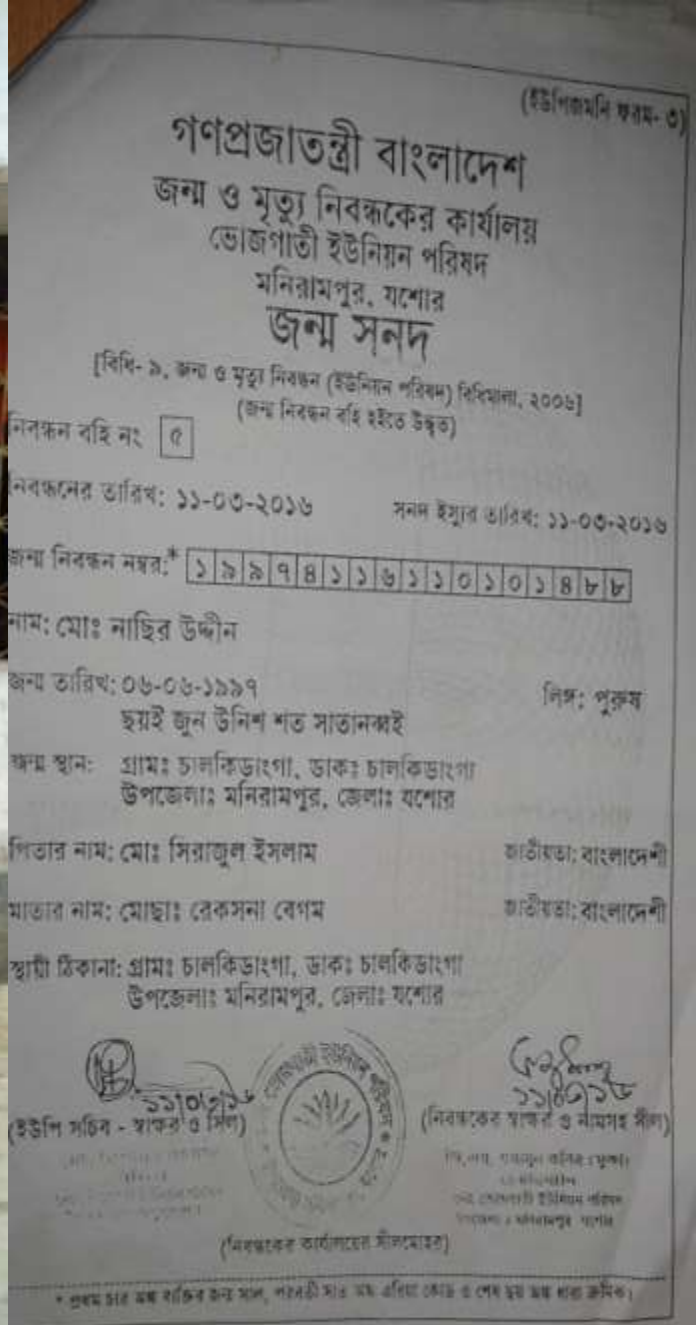 (ইউপিজমনি ফরম- ৩)
গণপ্রজাতন্ত্রী বাংলাদেশ
জন্ম ও মৃত্যু নিবন্ধকের কার্যালয়
ভোজগাতী ইউনিয়ন পরিষদ
মনিরামপুর, যশোর
জন্ম সনদ
[বিধি- ৯, জন্ম ও মৃত্যু নিবন্ধন (ইউনিয়ন পরিষদ) বিধিমালা, ২০০৬]
(জন্ম নিবন্ধন বহি হইতে উদ্ধৃত)
নিবন্ধন বহি নং ৫
নিবন্ধনের তারিখ: ১১-০৩-২০১৬ সনদ ইস্যুর তারিখ: ১১-০৩-২০১৬
জন্ম নিবন্ধন নম্বর:* ১৯৯৭৪১১৬১১০১০১৪৮৮
নাম: মোঃ নাছির উদ্দীন
জন্ম তারিখ: ০৬-০৬-১৯৯৭ লিঙ্গ: পুরুষ
ছয়ই জুন উনিশ শত সাতানব্বই
জন্ম স্থান: গ্রামঃ চালকিডাংগা, ডাকঃ চালকিডাংগা
উপজেলাঃ মনিরামপুর, জেলাঃ যশোর
পিতার নাম: মোঃ সিরাজুল ইসলাম জাতীয়তা: বাংলাদেশী
মাতার নাম: মোছাঃ রেকসনা বেগম জাতীয়তা: বাংলাদেশী
স্থায়ী ঠিকানা: গ্রামঃ চালকিডাংগা, ডাকঃ চালকিডাংগা
উপজেলাঃ মনিরামপুর, জেলাঃ যশোর
১১/০৩/১৬ ১১/০৩/১৬
(ইউপি সচিব - স্বাক্ষর ও সিল) (নিবন্ধকের স্বাক্ষর ও নামসহ সীল)
ভোজগাতী ইউনিয়ন পরিষদ
(নিবন্ধকের কার্যালয়ের সীলমোহর)
* প্রথম চার অঙ্ক ব্যক্তির জন্ম সাল, পরবর্তী সাত অঙ্ক এরিয়া কোড ও শেষ ছয় অঙ্ক ধারা ক্রমিক।